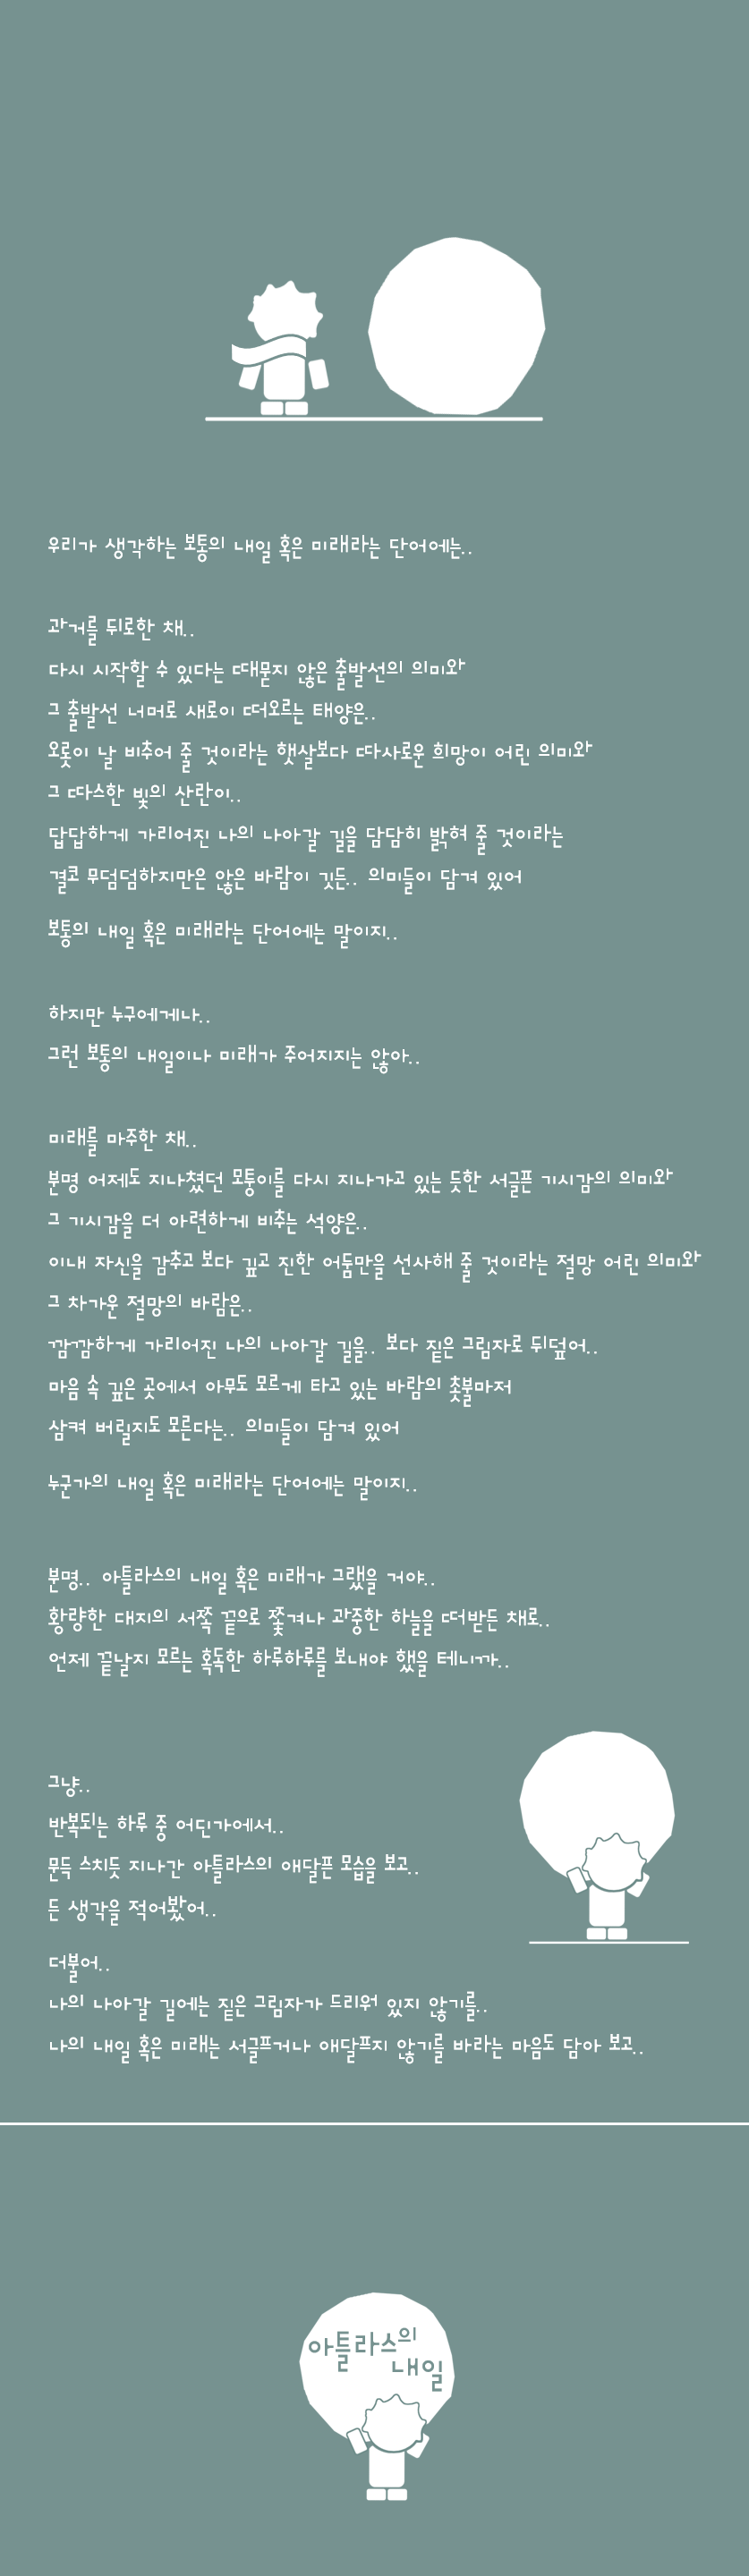 우리가 생각하는 보통의 내일 혹은 미래라는 단어에는..
과거를 뒤로한 채..
다시 시작할 수 있다는 때묻지 않은 출발선의 의미와
그 출발선 너머로 새로이 떠오르는 태양은..
오롯이 날 비추어 줄 것이라는 햇살보다 따사로운 희망이 어린 의미와
그 따스한 빛의 산란이..
답답하게 가리어진 나의 나아갈 길을 담담히 밝혀 줄 것이라는
결코 무덤덤하지만은 않은 바람이 깃든.. 의미들이 담겨 있어
보통의 내일 혹은 미래라는 단어에는 말이지..
하지만 누구에게나..
그런 보통의 내일이나 미래가 주어지지는 않아..
미래를 마주한 채..
분명 어제도 지나쳤던 모퉁이를 다시 지나가고 있는 듯한 서글픈 기시감의 의미와
그 기시감을 더 아련하게 비추는 석양은..
이내 자신을 감추고 보다 깊고 진한 어둠만을 선사해 줄 것이라는 절망 어린 의미와
그 차가운 절망의 바람은..
깜깜하게 가리어진 나의 나아갈 길을.. 보다 짙은 그림자로 뒤덮어..
마음 속 깊은 곳에서 아무도 모르게 타고 있는 바람의 촛불마저
삼켜 버릴지도 모른다는.. 의미들이 담겨 있어
누군가의 내일 혹은 미래라는 단어에는 말이지..
분명.. 아틀라스의 내일 혹은 미래가 그랬을 거야..
황량한 대지의 서쪽 끝으로 쫓겨나 과중한 하늘을 떠받든 채로..
언제 끝날지 모르는 혹독한 하루하루를 보내야 했을 테니까..
그냥..
반복되는 하루 중 어딘가에서..
문득 스치듯 지나간 아틀라스의 애달픈 모습을 보고..
든 생각을 적어봤어..
더불어..
나의 나아갈 길에는 짙은 그림자가 드리워 있지 않기를..
나의 내일 혹은 미래는 서글프거나 애달프지 않기를 바라는 마음도 담아 보고..
아틀라스의
내일